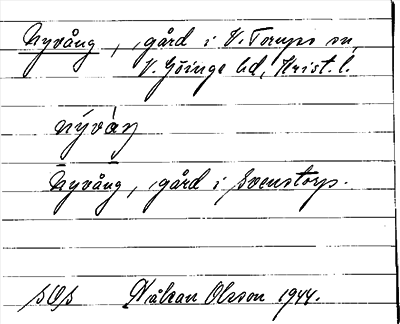 Nyvång, gård i V. Torups sn,
V. Göinge hd, Krist. l.
nývàŋ
Nyvång, gård i Svenstorp.
SOS Håkan Olsson 1944.